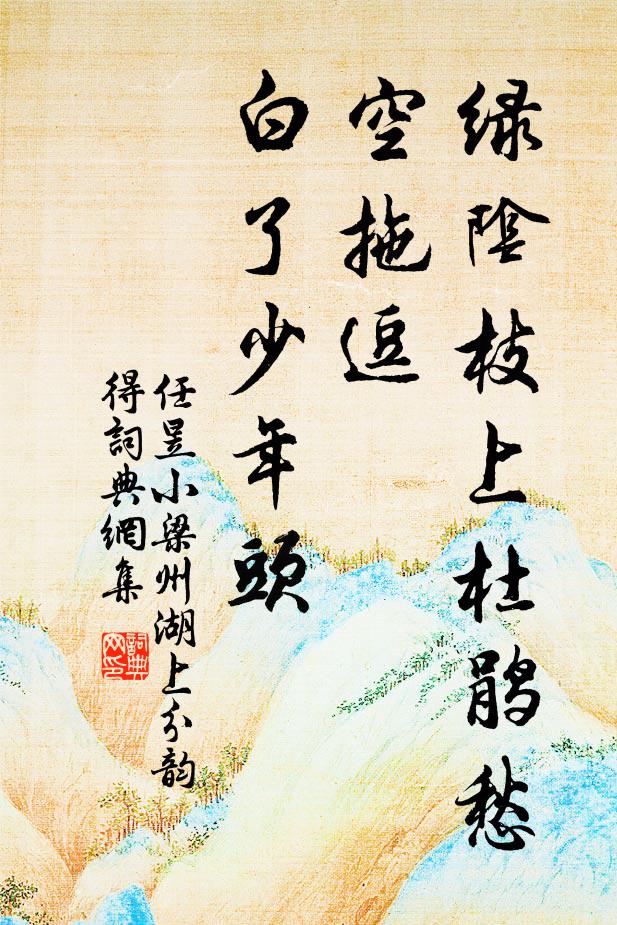 绿陰枝上杜鹃愁
空拖逗
白了少年頭
任昱小梁州湖上分韵
得詞典網集
詞典
网印